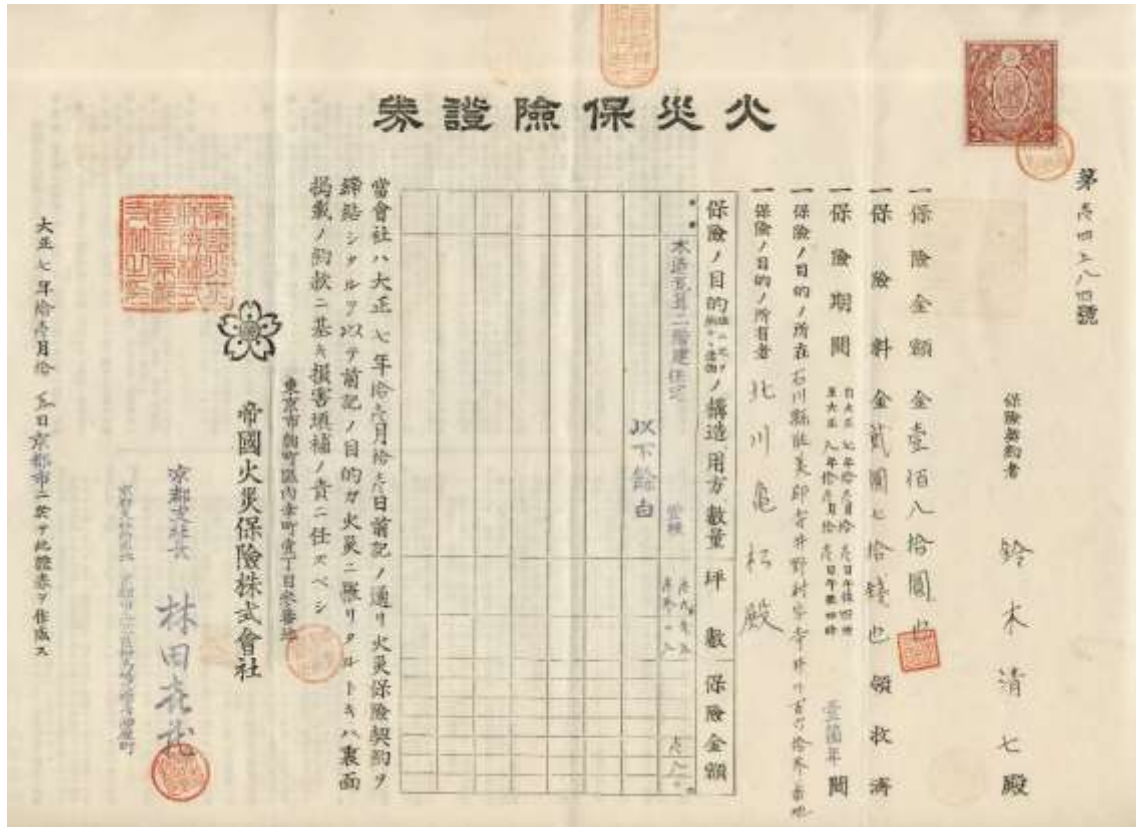 火災保險證券
第壱四五八四號
保險契約者 鈴木清七殿
一保險金額 金壹百八拾圓也
一保險料 金貳圓七拾錢也領收濟
一保險期間 自大正七年拾壱月拾壱日午後四時
至大正八年拾壱月拾壱日午後四時 壹箇年間
一保險ノ目的ノ所在 石川縣能美郡寺井野村字寺井
一保險ノ目的ノ所有者 北川亀松殿
保險ノ目的ノ構造用方 數量 坪數 保險金額
木造瓦葺二階建住宅 壹棟
以下餘白
當會社ハ大正七年拾壱月拾壱日前記ノ通リ火災保險契約ヲ
締結シタルヲ以テ前記ノ目的ガ火災ニ罹リタルトキハ裏面
揭載ノ約款ニ基キ損害塡補ノ責ニ任スベシ
東京市麹町區內幸町壹丁目參番地
帝國火災保險株式會社
京都支社長 林田
大正七年拾壱月拾五日京都市ニ於テ此證券ヲ作成ス